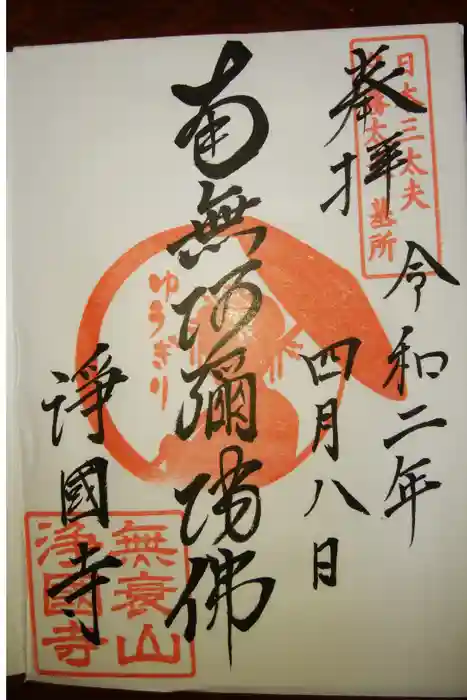 日本三太夫
夕霧太夫墓所
奉拝
令和二年
四月八日
南無阿彌陀佛
ゆうぎり
淨國寺
無衰山
浄國寺